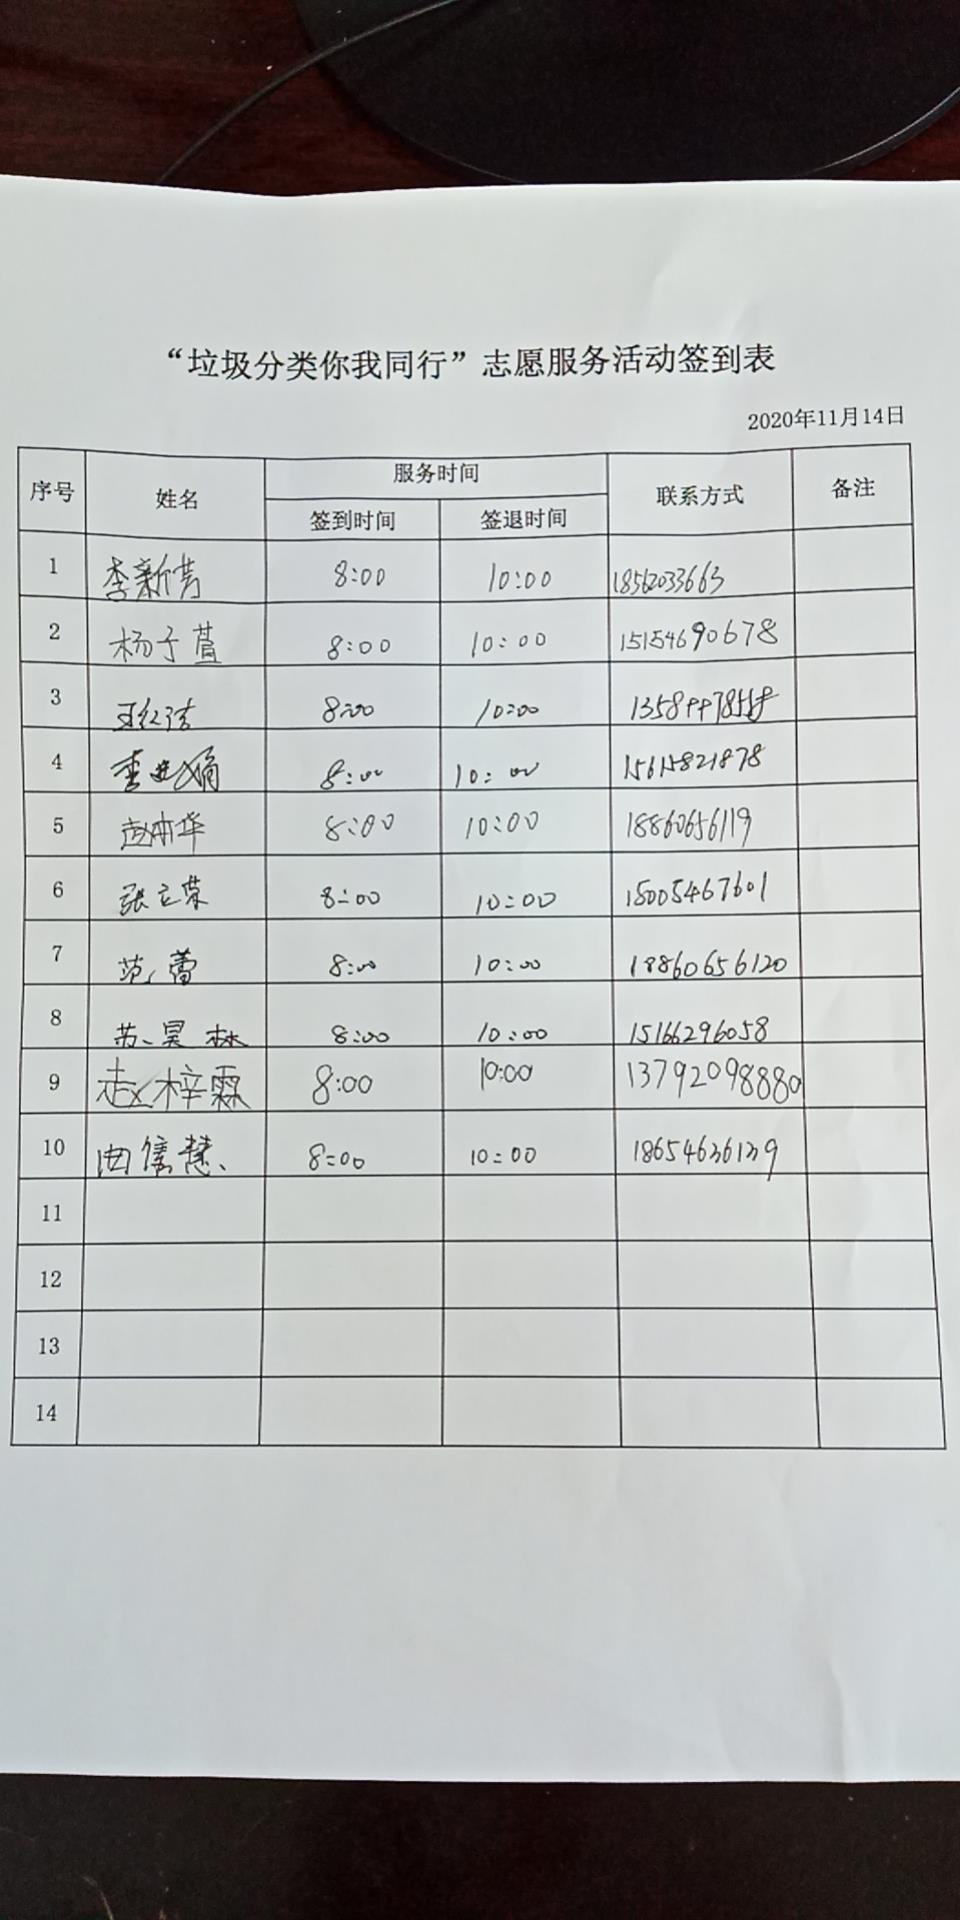 “垃圾分类你我同行”志愿服务活动签到表
2020年11月14日
序号 姓名 服务时间 联系方式 备注
签到时间 签退时间
1 李新芳 8:00 10:00 18562033663
2 杨子萱 8:00 10:00 15154690678
3 王红洁 8:00 10:00
4 李进娟 8:00 10:00 15615821878
5 赵本华 8:00 10:00 18860656119
6 张立荣 8:00 10:00 15005467601
7 范蕾 8:00 10:00 18860656120
8 苏昊林 8:00 10:00 15166296058
9 赵梓霖 8:00 10:00 13792098880
10 曲信慧 8:00 10:00 18654636139
11
12
13
14